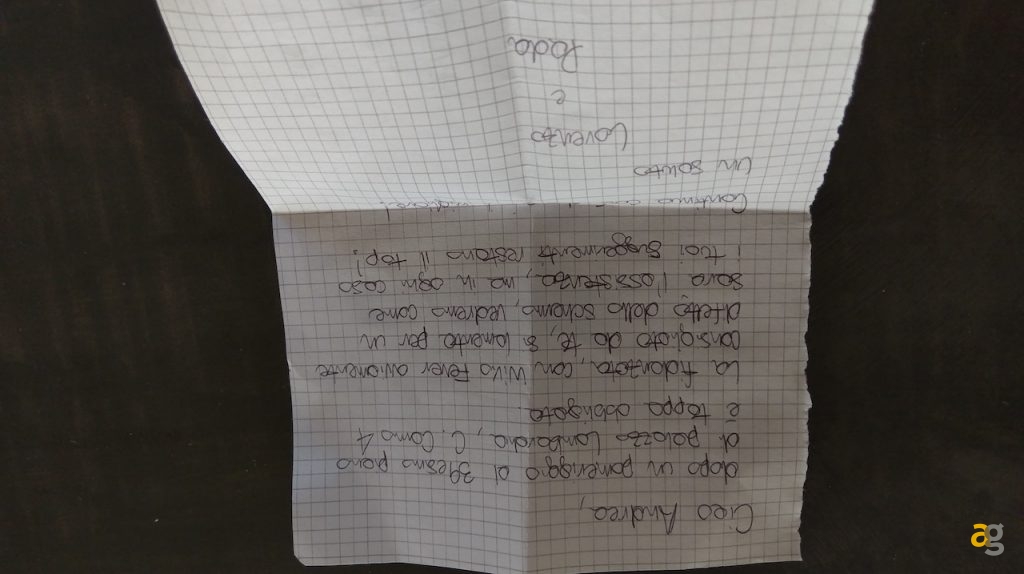 Ciao Andrea,
dopo un pomeriggio al 39esimo piano
di palazzo Lombardia, C. Como 4
è tappa obbligata
La fidanzata, con Wiko Fever ovviamente
consigliato da te, si lamenta per un
difetto dello schermo, vedremo come
sarà l'assistenza, ma in ogni caso
i tuoi suggerimenti restano il top!
Continua
un saluto
Lorenzo
e
Paola
ag